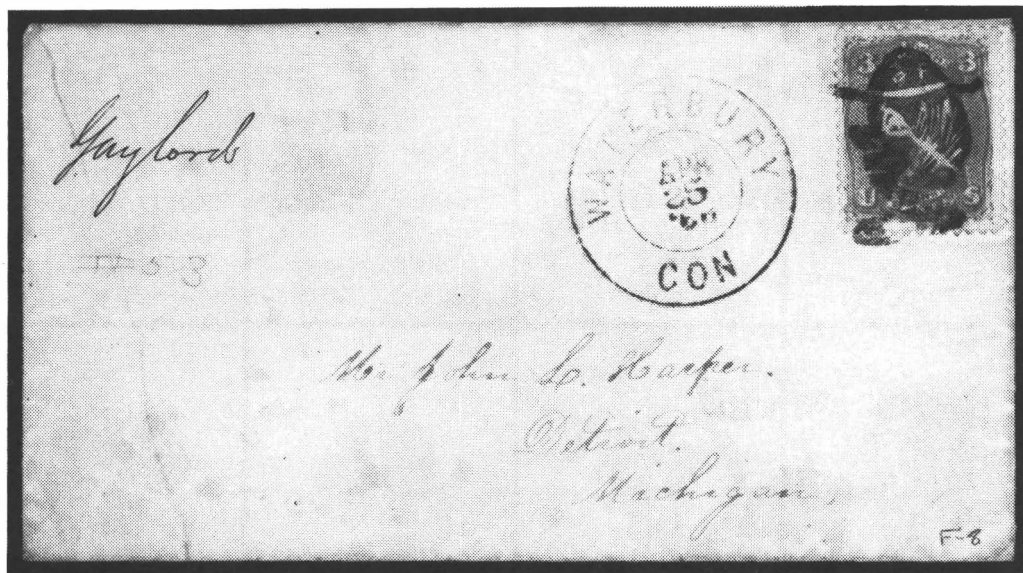 Gaylord
WATERBURY
APR
25
CON
3 3
U S
Mr John L. Harper.
Detroit.
Michigan,
F-8